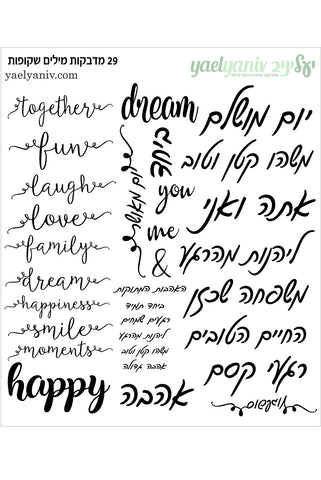 29 מדבקות מילים שקופות
yaelyaniv.com
יעליניב
yaelyaniv
together
fun
laugh
love
family
dream
happiness
smile
moments
happy
dream
ביחד
יום מאושר
you
&
me
האהבות המתוקות
ביחד תמיד
רגעים שמחים
ליהנות מהרגע
משהו קטן וטוב
אהבה גדולה
אהבה
יום מושלם
משהו קטן וטוב
אתה ואני
ליהנות מהרגע
משפחה שכזו
החיים הטובים
רגעי קסם